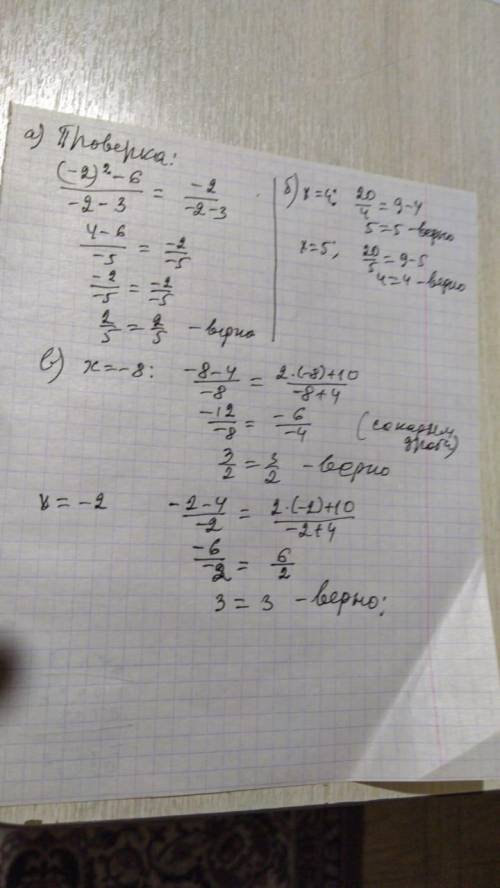 а) Проверка:
((-2)² - 6)/(-2 - 3) = -2/(-2 - 3)
(4 - 6)/-5 = -2/-5
-2/-5 = -2/-5
2/5 = 2/5 - верно
б) x=4; 20/4 = 9-4
5 = 5 - верно
x=5; 20/5 = 9-5
4 = 4 - верно
в) x = -8: (-8-4)/-8 = (2·(-8)+10)/(-8+4)
-12/-8 = -6/-4 (сократим дроби)
3/2 = 3/2 - верно
x = -2 (-2-4)/-2 = (2·(-2)+10)/(-2+4)
-6/-2 = 6/2
3 = 3 - верно;